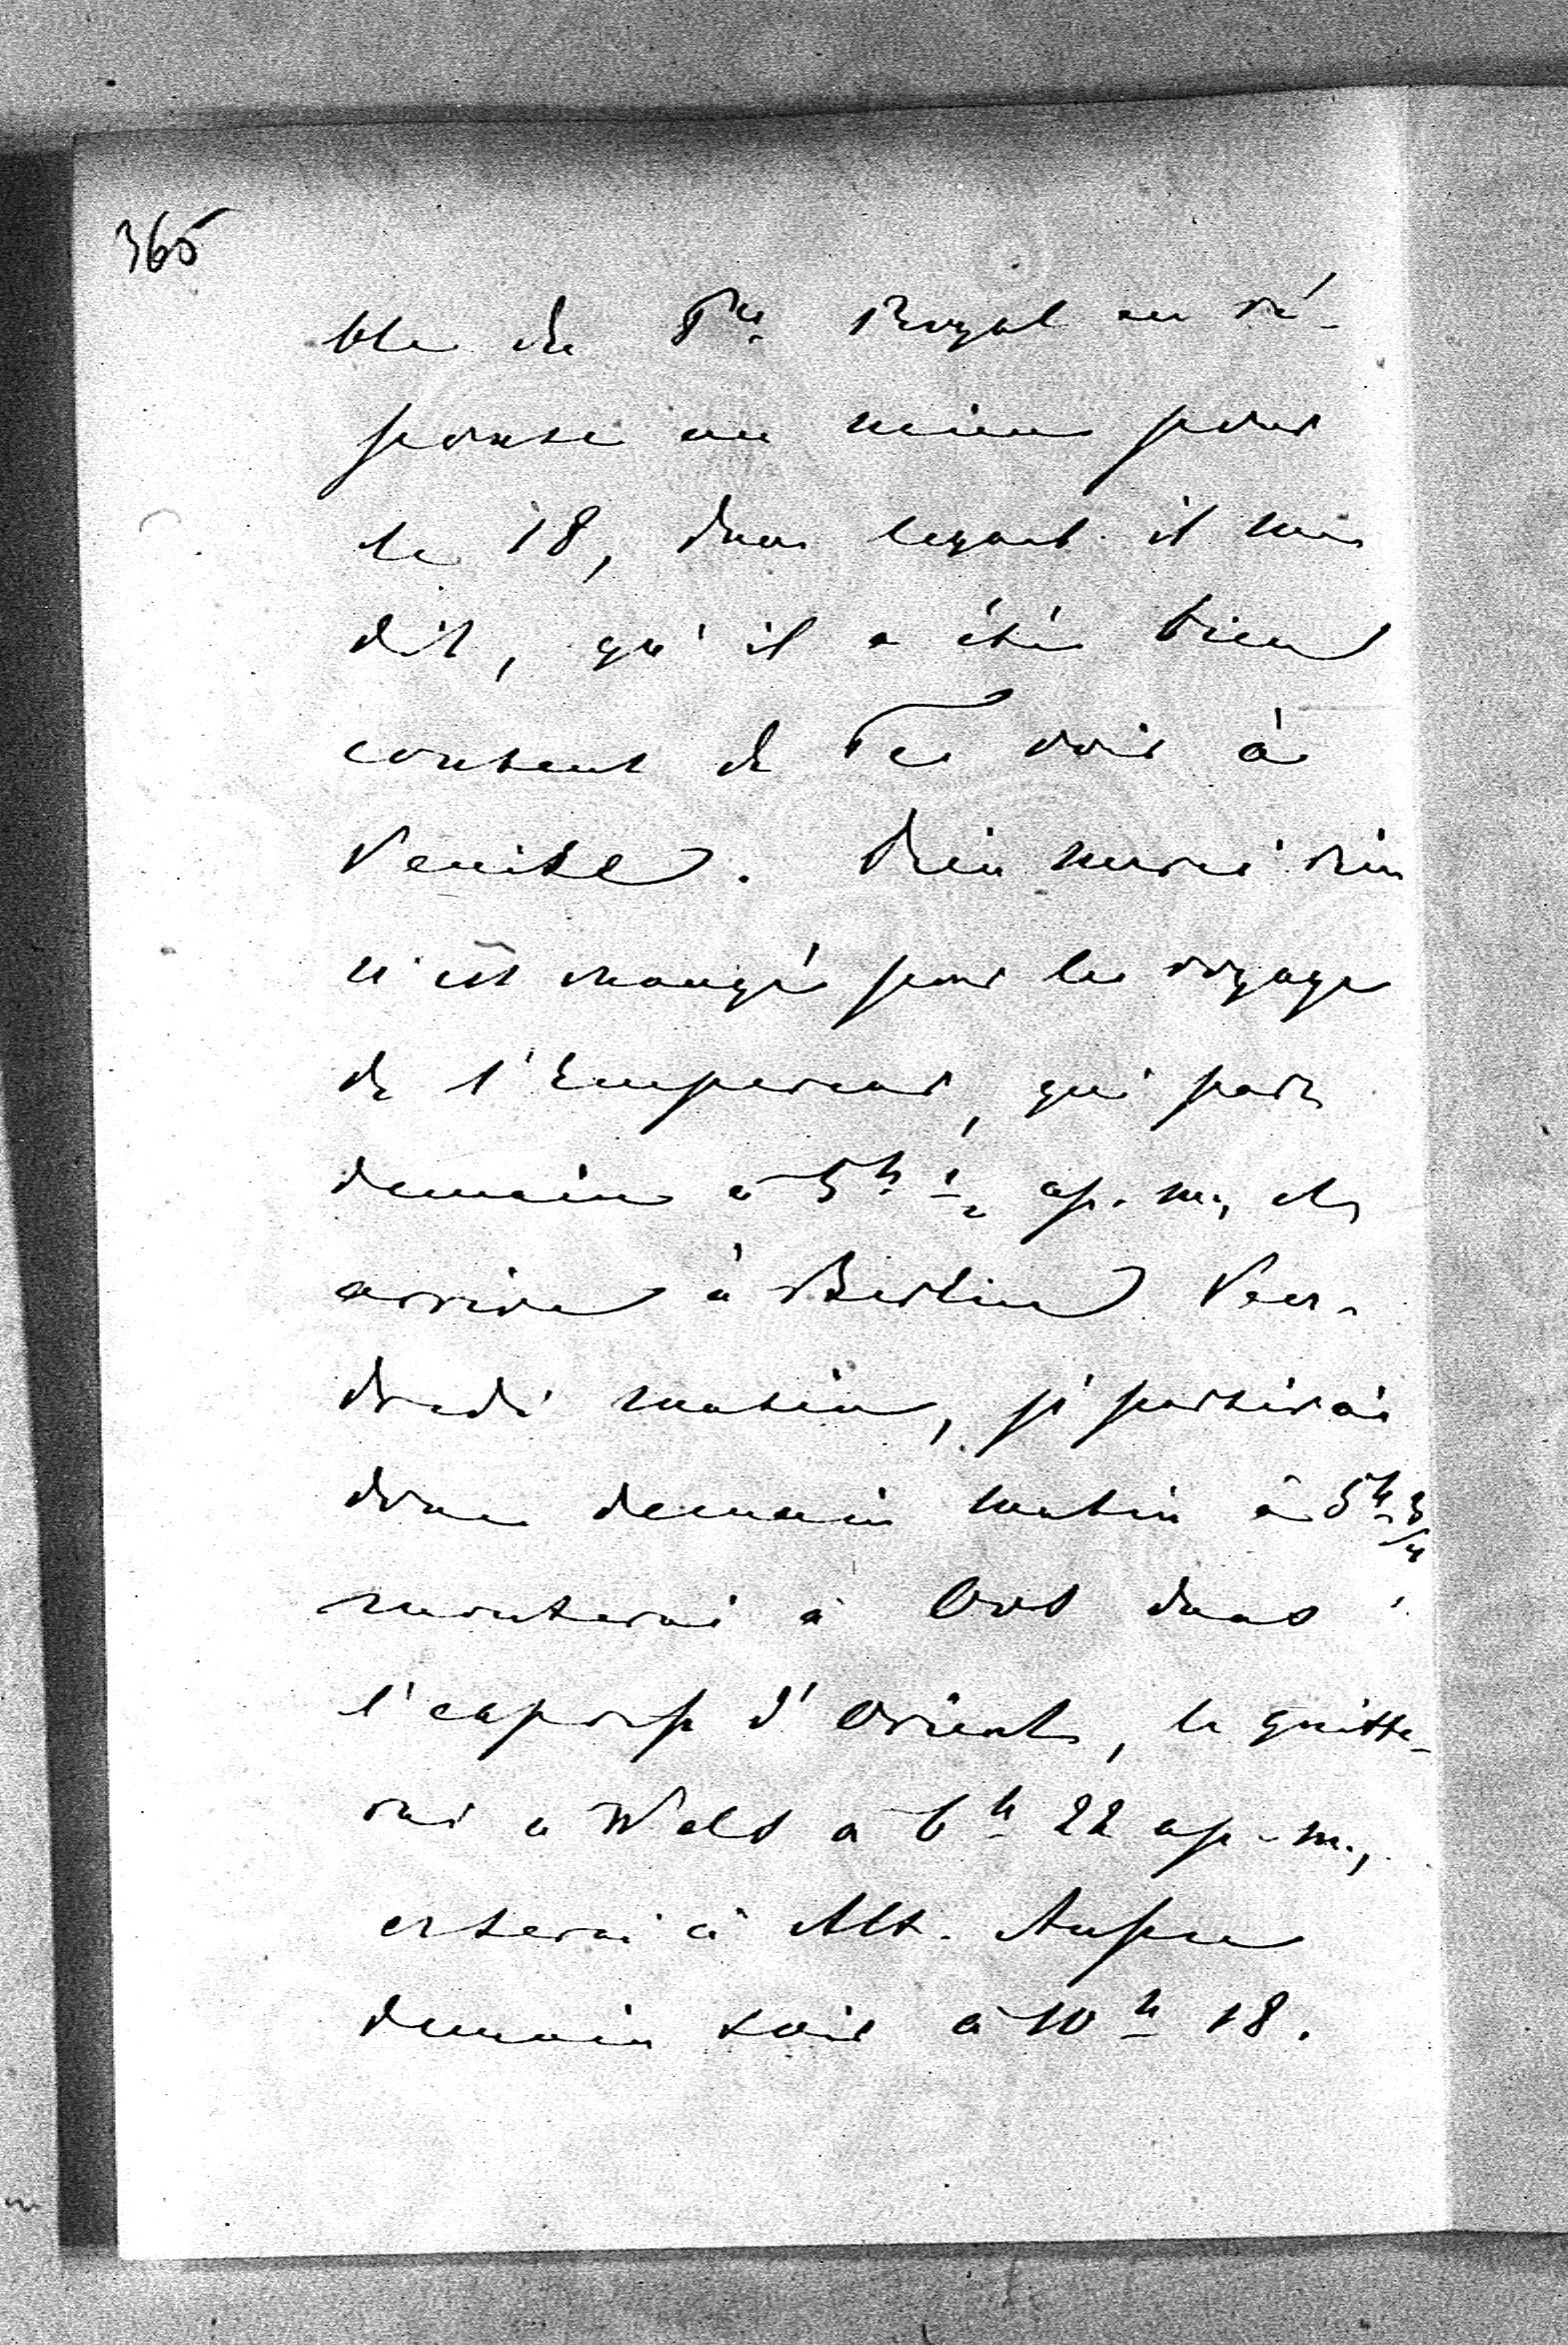 365
ble du Pce Royal en ré-
ponse au mien pour
le 18, dans lequel il me
dit, qu'il a été bien
content de Te voir à
Venise. Dieu merci rien
n'est changé pour le voyage
de l'Empereur, qui part
demain à 5h 1/2 ap. m., et
arrive à Berlin Ven-
dredi matin, je partirai
donc demain matin à 5h 3/4
monterai à Oos dans
l'express d'Orient, le quitte-
rai à Wels à 6h 22 ap. m.,
et serai à Alt. Aussee
demain soir à 10h 18.